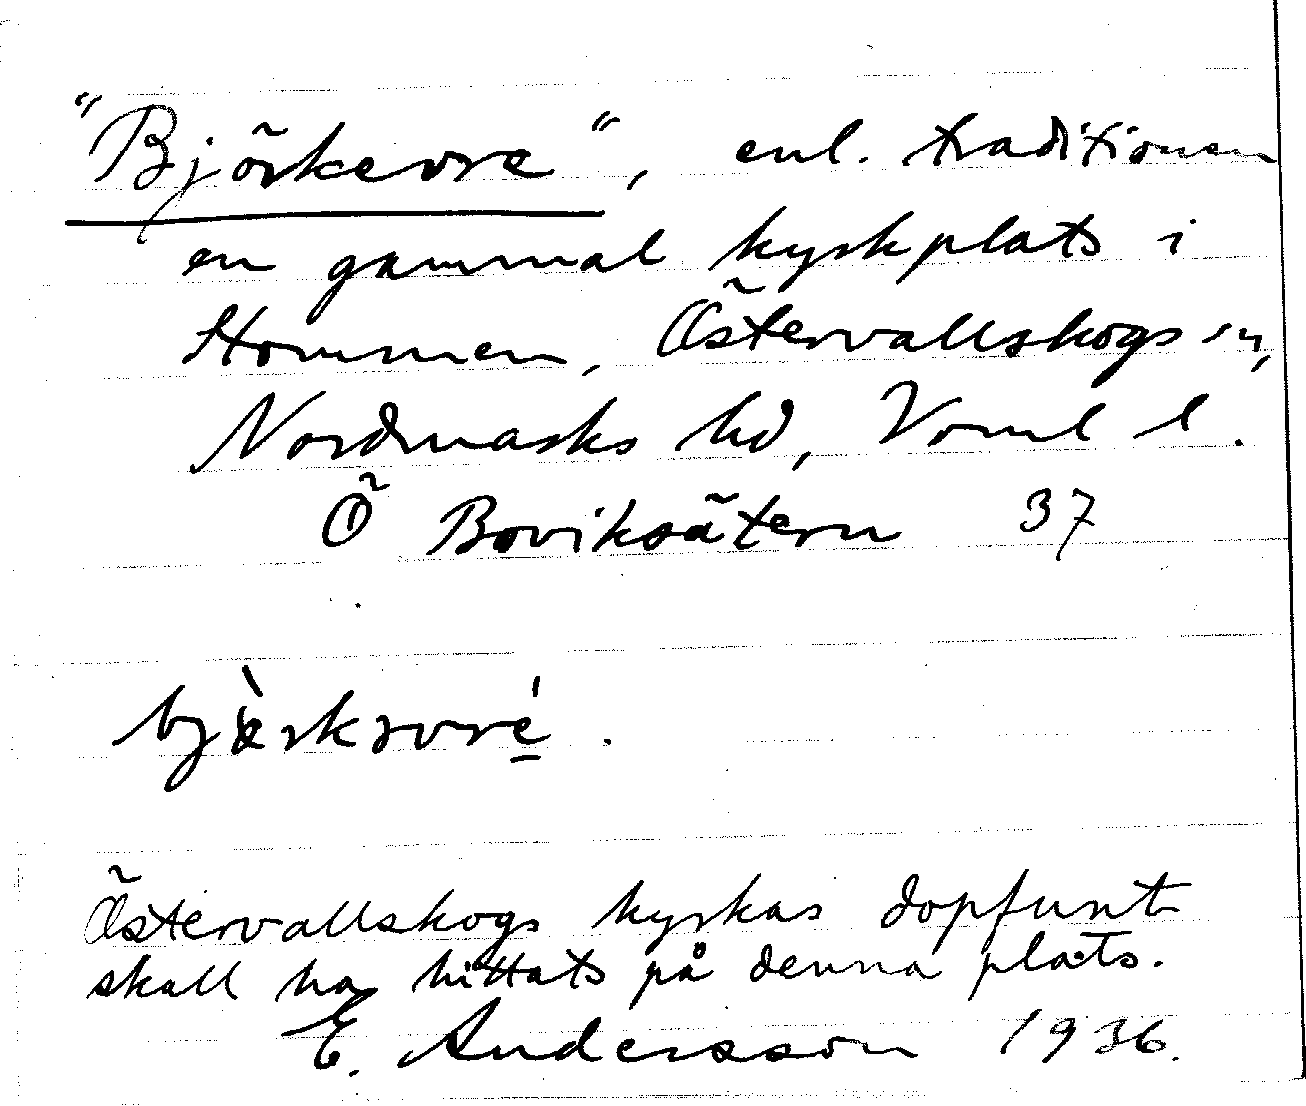 "Björkevre", enl. traditionen
en gammal kyrkplats i
Hommen, Östervallskogs sn,
Nordmarks hd, Verml l.
Ö Boviksätern 37
Östervallskogs kyrkas dopfunt
skall ha hittats på denna plats.
E. Andersson 1936.